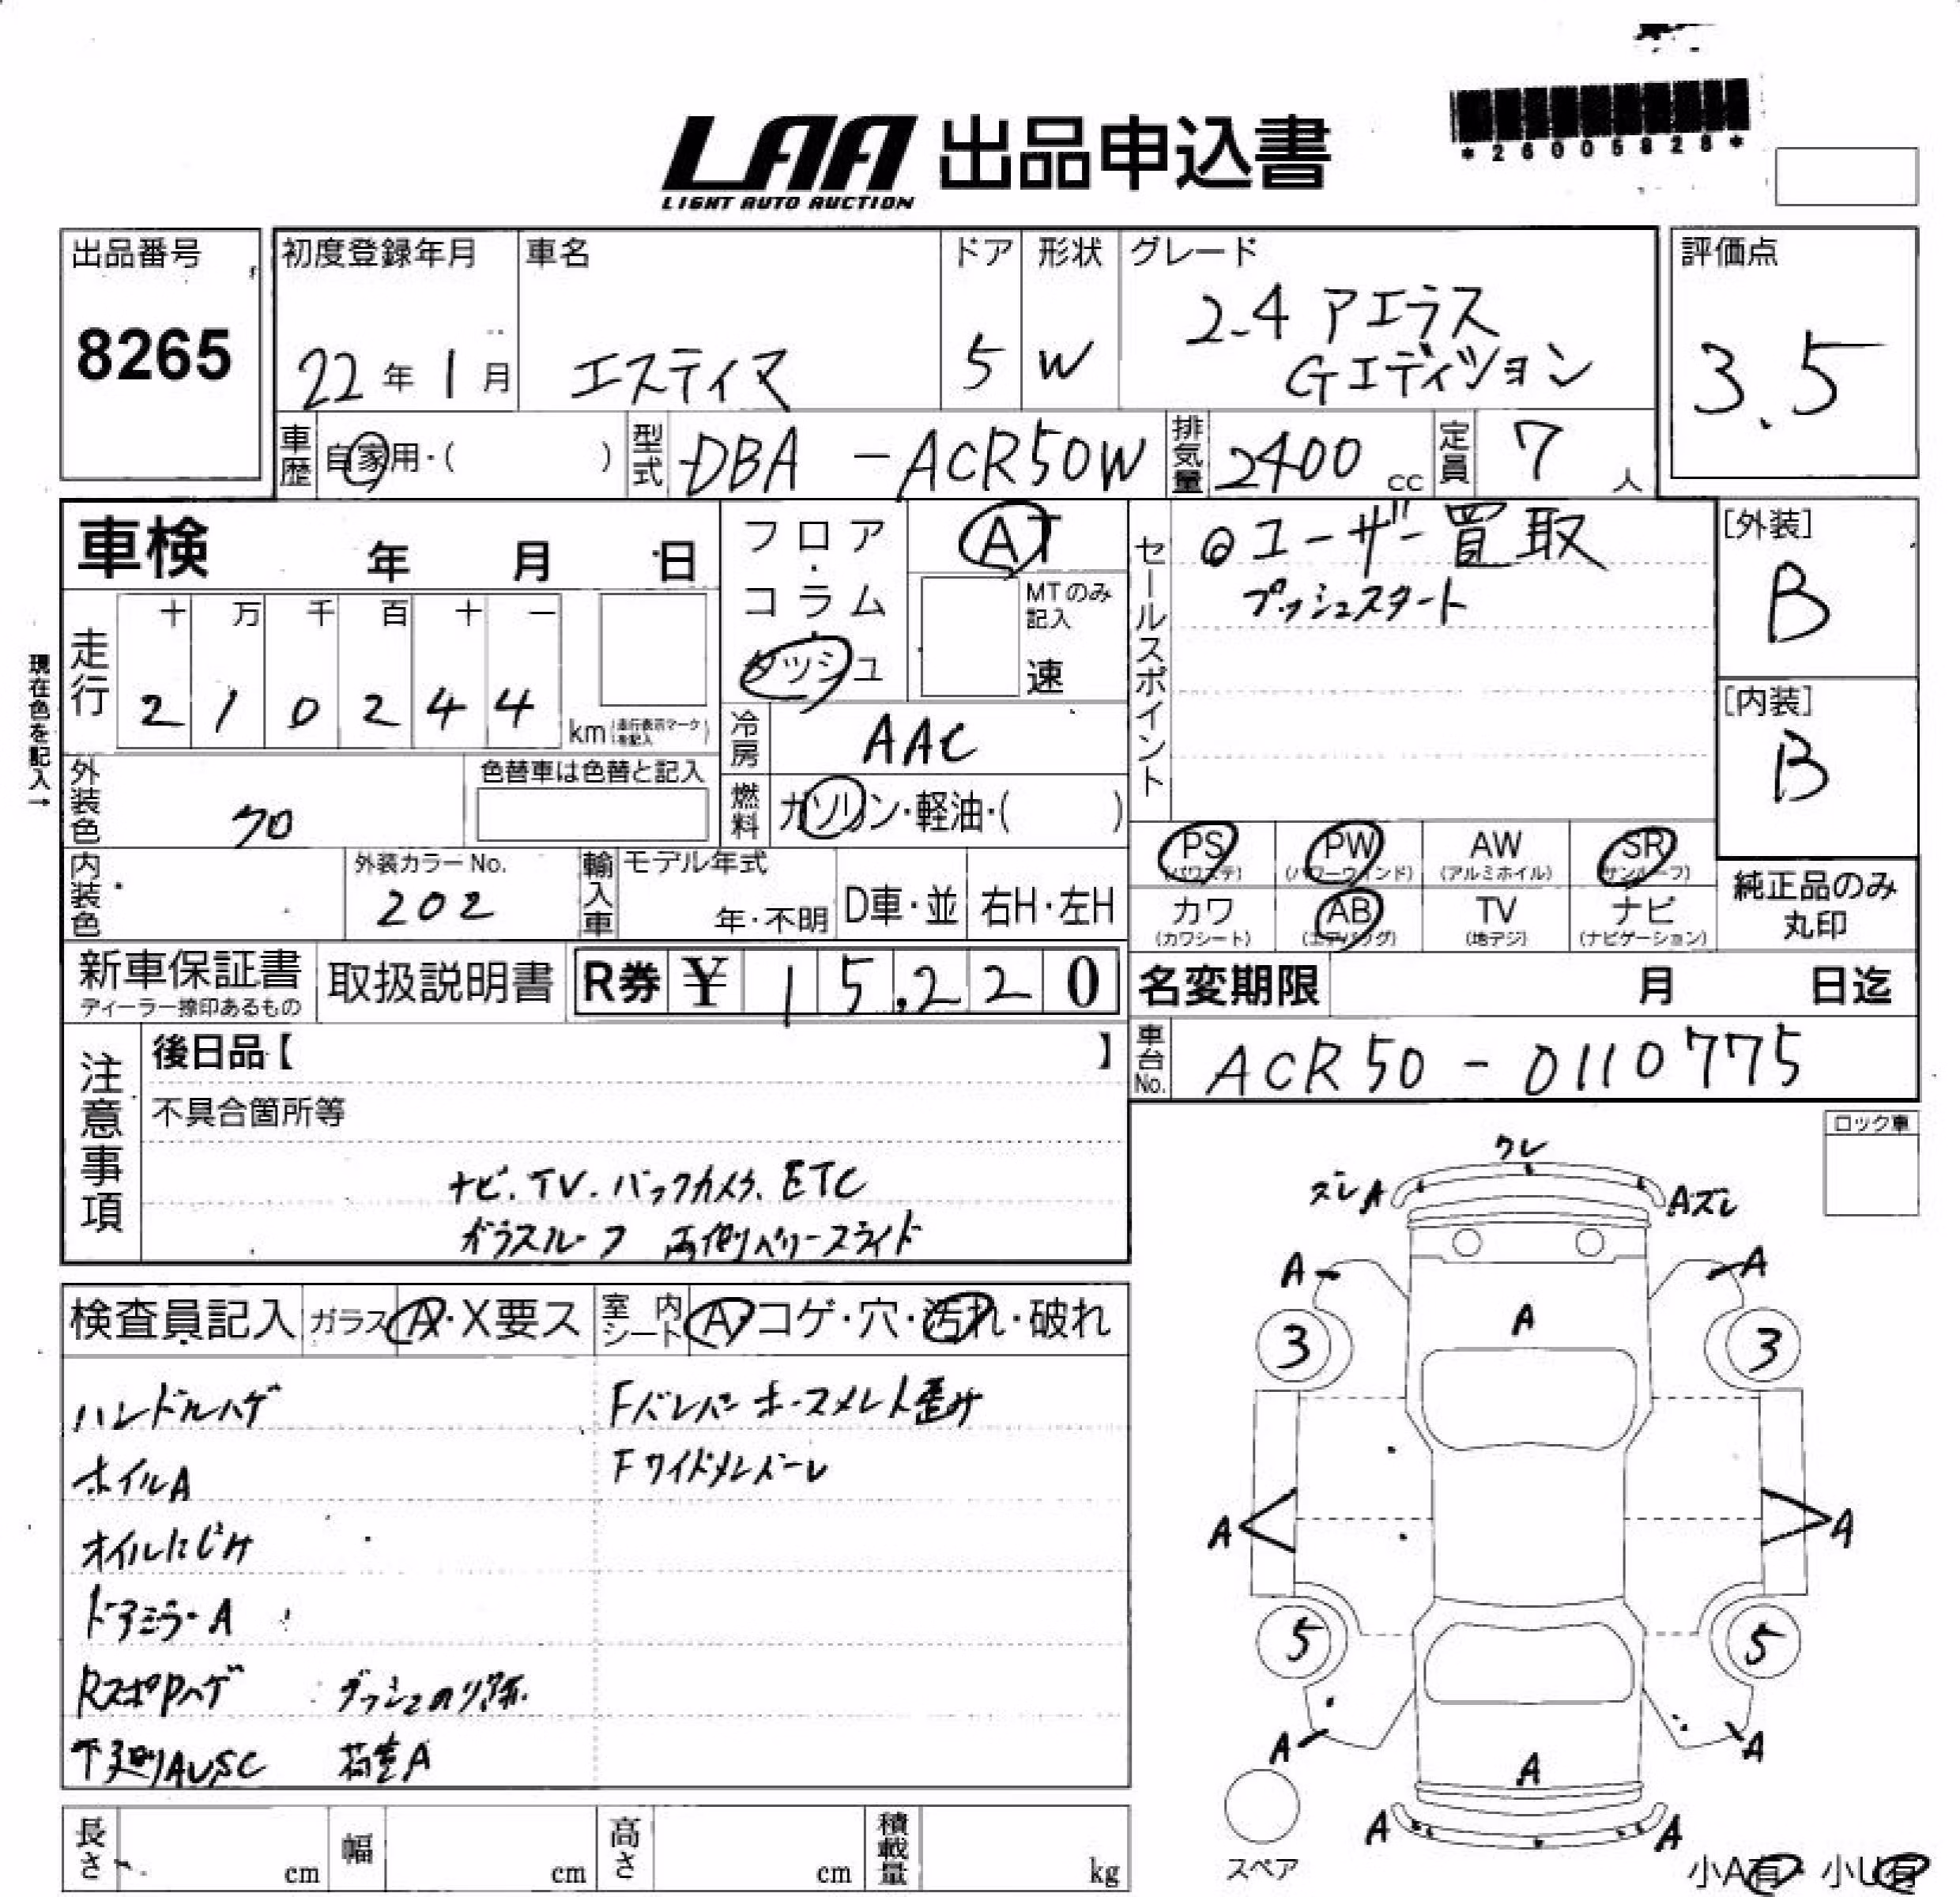 *26005828*
LAA 出品申込書
LIGHT AUTO AUCTION
出品番号
8265
初度登録年月
22年1月
車名
エスティマ
ドア
5
形状
W
グレード
2.4 アエラス
Gエディション
評価点
3.5
車歴
自家用・( )
型式
DBA-ACR50W
排気量
2400cc
定員
7人
車検 年 月 日
フロア・コラム・ダッシュ
AT
MTのみ記入
速
セールスポイント
◎ユーザー買取
プッシュスタート
[外装]
B
[内装]
B
現在色を記入→
走行
十 万 千 百 十 一
2 1 0 2 4 4
km (走行表示マークを記入)
冷房
AAC
外装色
クロ
色替車は色替と記入
燃料
ガソリン・軽油・( )
PS (パワステ)
PW (パワーウインド)
AW (アルミホイル)
SR (サンルーフ)
カワ (カワシート)
AB (エアバッグ)
TV (地デジ)
ナビ (ナビゲーション)
純正品のみ
丸印
内装色
外装カラーNo.
202
輸入車
モデル年式
年・不明
D車・並
右H・左H
新車保証書
ディーラー捺印あるもの
取扱説明書
R券 ¥ 15,220
名変期限 月 日迄
車台No.
ACR50-0110775
注意事項
後日品【 】
不具合箇所等
ナビ.TV.バックカメラ.ETC
ガラスルーフ 両側パワースライド
ロック車
検査員記入
ガラス A・X要ス
室内シート A コゲ・穴・汚れ・破れ
ハンドルハゲ
ホイルA
オイルにじみ
ドアミラーA
RスポPハゲ ダッシュのり跡
下廻りAU,SC 荷室A
Fワイドメンバーレ
ワレ
ズレA
Aズレ
A
A
A
3
3
A
A
5
5
A
A
A
A
A
スペア
小A有・小U有
長さ cm
幅 cm
高さ cm
積載量 kg